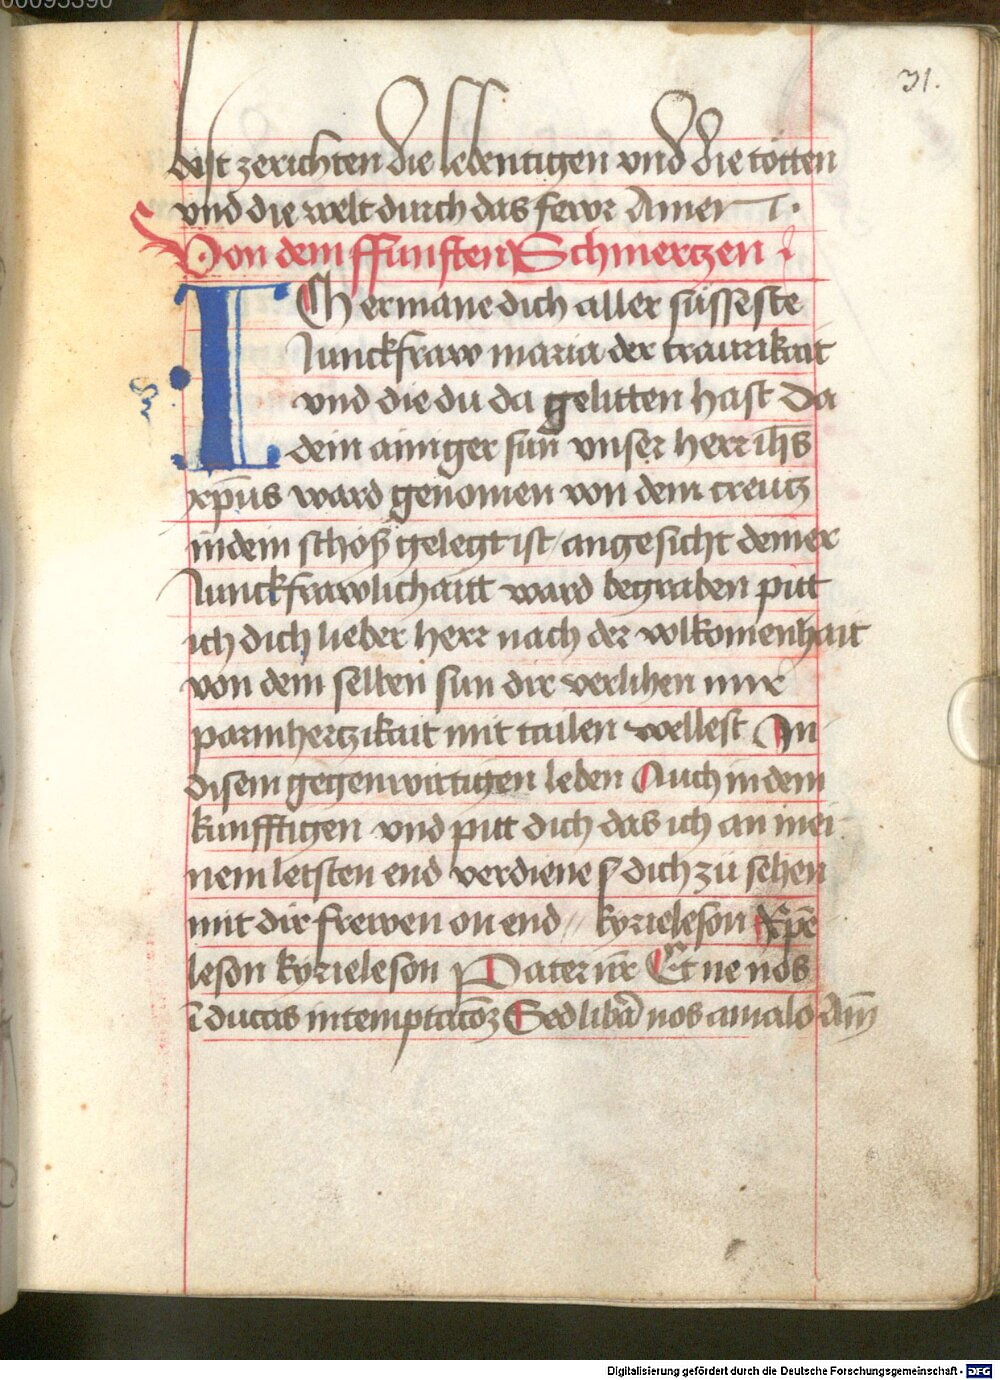 00095390
31.
dast zerichten die lebentigen vnd die totten
vnd die welt durch das fewr Amen
Von dem ffunften Schmertzen
ICh ermane dich aller süsseste
Junckfraw maria der traurikait
vnd die du da gelitten hast Da
dein ainiger sun vnser herr ihs̄
xp̄us ward genomen von dem creutz
in dein schos gelegt ist / angesicht deiner
Junckfrawlichaitt ward begraben pitt
ich dich lieber herr nach der volkomenhait
von dem selben sun dir verlihen mir
parmhertzikait mit tailen wellest In
disem gegenwirtigen leben Auch in dem
kunfftigen vnd pitt dich das ich an mei
nem letsten end verdiene dich zü sehen
mit dir frewen on end // kyrieleson Xp̄e
leson kyrieleson Pater nr̄ Et ne nos
īducas in temptacōz Sed libā nos a malo Am̄
Digitalisierung gefördert durch die Deutsche Forschungsgemeinschaft - DFG